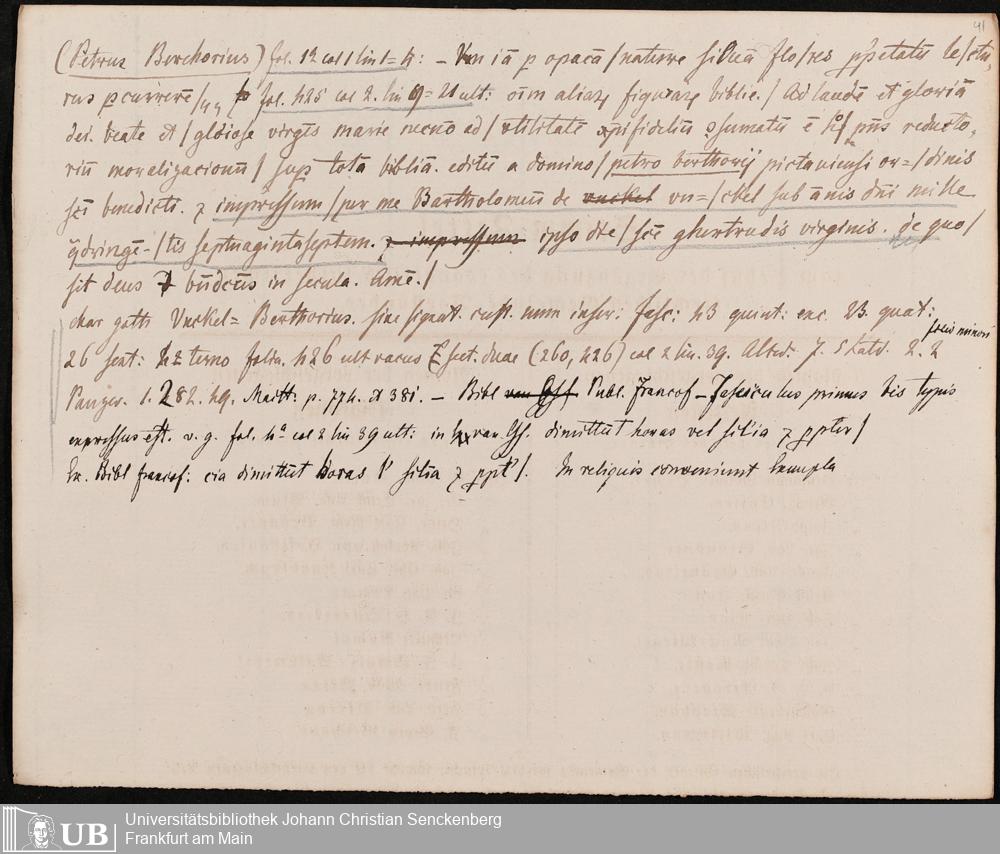 41
(Petrus Berchorius) fol. 1a col 1 lin 1-4: – Ven iā p opacā / nature siluā flo/res ppetatū lectu/
rus pcurrere / 44 fol. 425 col 2. lin 9-21 ult: oīm aliaꝝ figuraꝝ biblie. / Ad laudē et gloriā
dei. beate et / gloriose virgīs marie necnō ad / vtilitatē xpifideliū ꝯsumatū ē h pn̄s reducto-
riū moralizacionū / sup totā bibliā. editū a domino / petro berthorij pictauiensi or= / dinis
sci benedicti. ⁊ impressum / per me Bartholomeū de vnckel vn= / ckel sub ānis dn̄i mille
qdringē- / tis septuagintaseptem. ⁊ impressum ipso die / scē ghertrudis virginis. de quo /
sit deus bn̄dictus in secula. Amē. /
char goth Vnckel= Berthorius. sine signat. cust. num inscr: fasc: 43 quint: exc. 23. quat:
foliis minori
26 sext: 42 terno foliis 426 ult vacuo sect. duae (260, 426) col 2 lin. 39. Alted. 7. 2.2
Panzer. 1. 282. 49. Maitt: p. 774. 381. – Bibl Publ. Francof – Fasciculus primus bis typis
expressus est. v. g. fol. 4a col 2 lin 39 ult: in dimittut horas vel sil'ia ⁊ ppter /
Ex. Bibl francof: cia dimittūt horas l' silia ⁊ ppt' /. In reliquis conveniunt Exempla
UB
Universitätsbibliothek Johann Christian Senckenberg
Frankfurt am Main